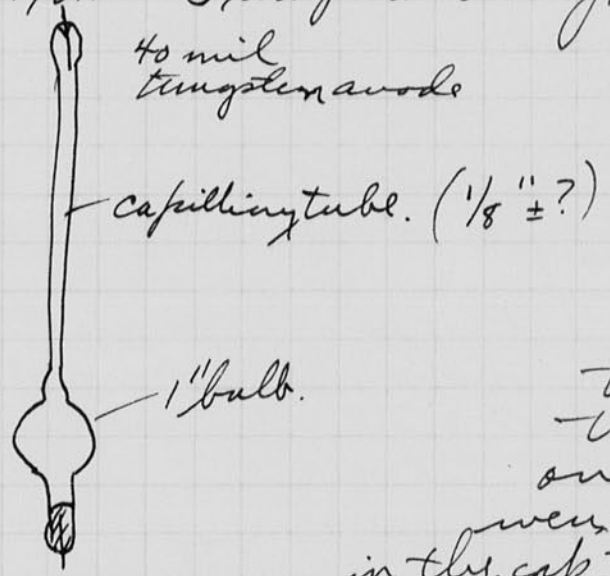 40 mil
tungsten anode
capilliary tube. (1/8" ± ?)
1" bulb.
on
in the cap